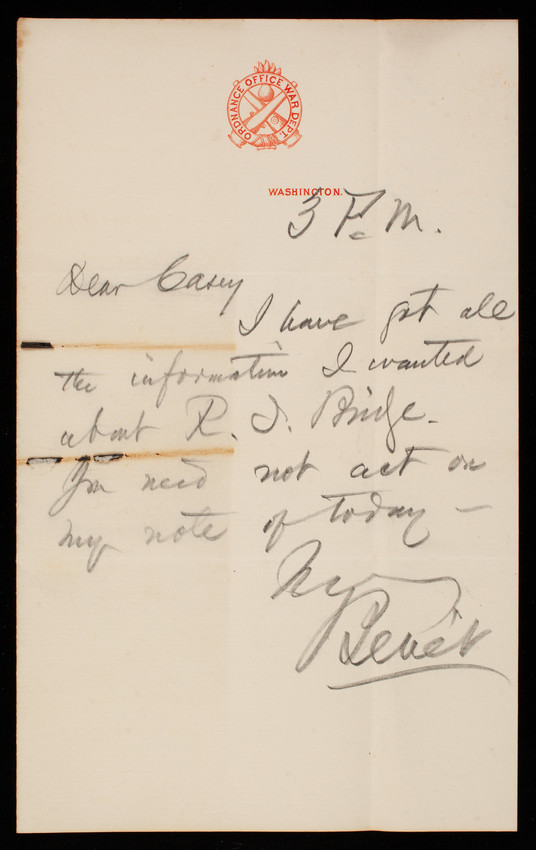 ORDNANCE OFFICE WAR DEPT.
WASHINGTON.
3 P.M.
Dear Casey
I have got all
the information I wanted
about R. I. Bridge.
You need not act on
my note of today —
Benét